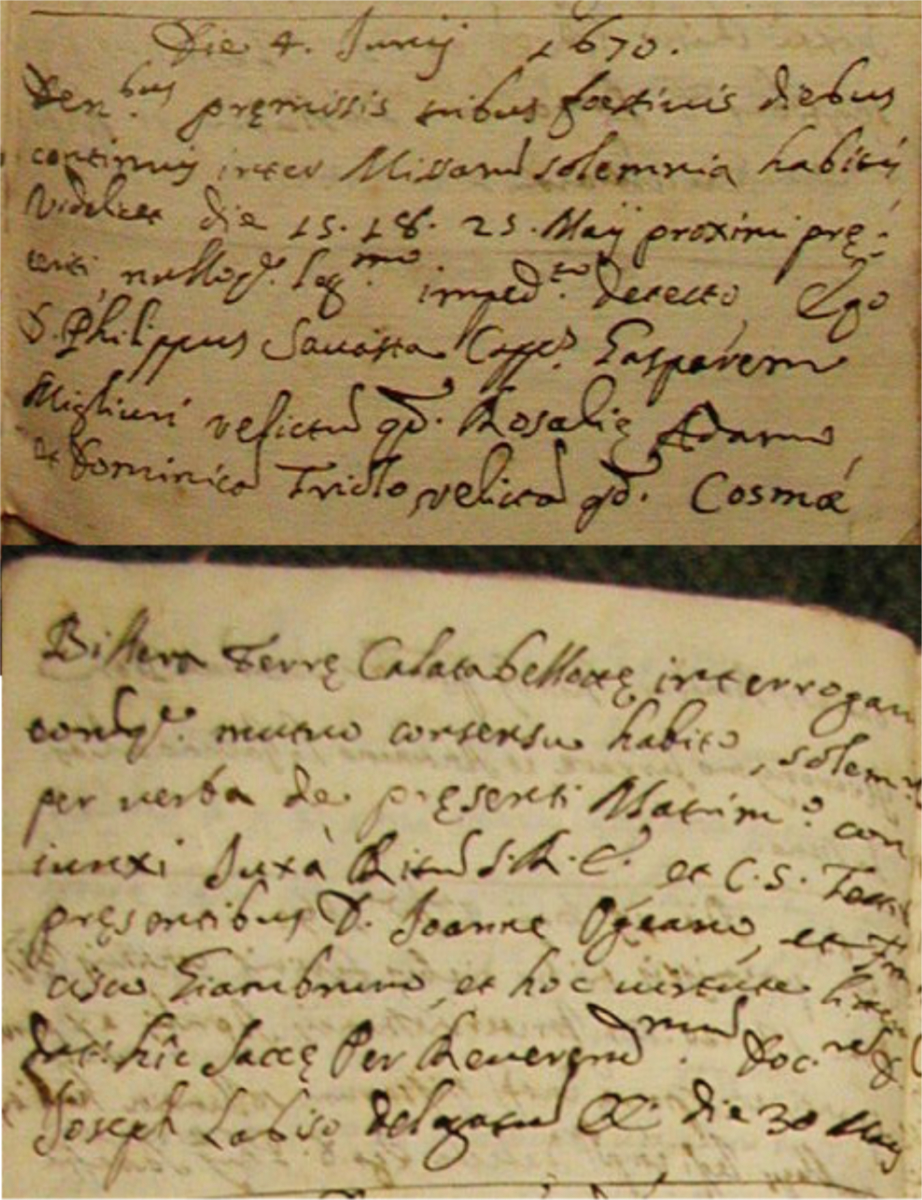 Die 4. Junij 1670.
Den.bus pręmissis tribus festivis diebus
continuis inter Missarum solemnia habitis
Videlicet die 15. 18. 25. Maij proximi prę-
teriti, nulloq.e leg.mo imped.to detecto, Ego
D. Philippus Savasta Capp.s Gasparem
Migliuri relictum qd. Rosalię Adamo,
et Dominicam Triolo relictam qd. Cosmæ
Billera Terrę Calatabellottę interrogavi
eorumq.e mutuo consensu habito, solemr.
per verba de pręsenti Matrim.o con
iunxi Juxtà Ritum S.R.E. et C.S. Testib.
pręsentibus D. Joanne et Fran
cisco Giambruno, et hoc virtute litter.
dat. hic Saccę Per Reverendum Doc.rem D.
Joseph Labiso delegatum die 30 Maij